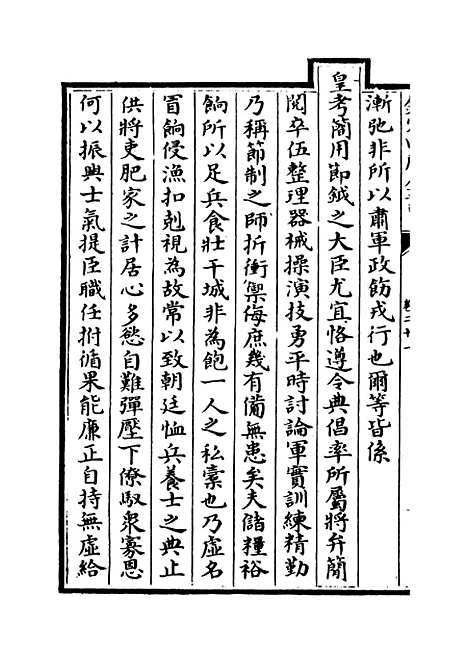 漸弛非所以肅軍政飭戎行也爾等皆係
皇考簡用節鉞之大臣尤宜恪遵令典倡率所屬將弁簡
閱卒伍整理器械操演技勇平時討論軍實訓練精勤
乃稱節制之師折衝禦侮庶幾有備無患矣夫儲糧裕
餉所以足兵食壯干城非為飽一人之私橐也乃虛名
冒餉侵漁扣剋視為故常以致朝廷恤兵養士之典止
供將吏肥家之計居心多慾自難彈壓下僚馭衆寡恩
何以振興士氣提臣職任拊循果能廉正自持無虛給